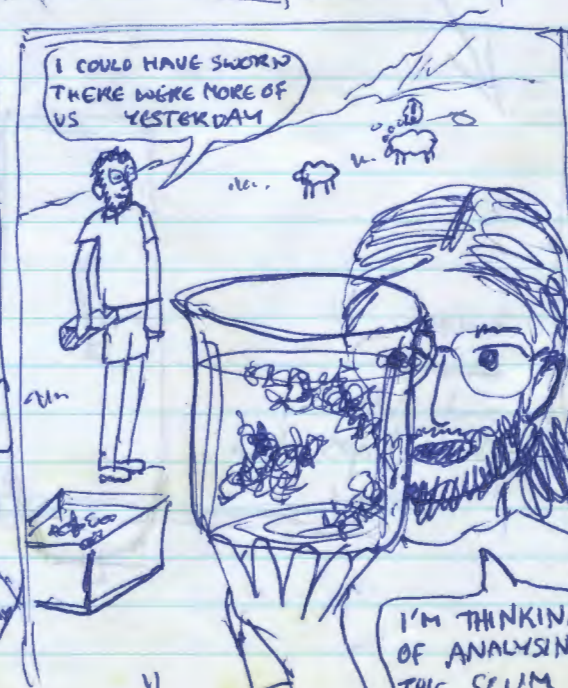 I COULD HAVE SWORN
THERE WERE MORE OF
US YESTERDAY
I'M THINKIN
OF ANALYSIN
THE SCUM